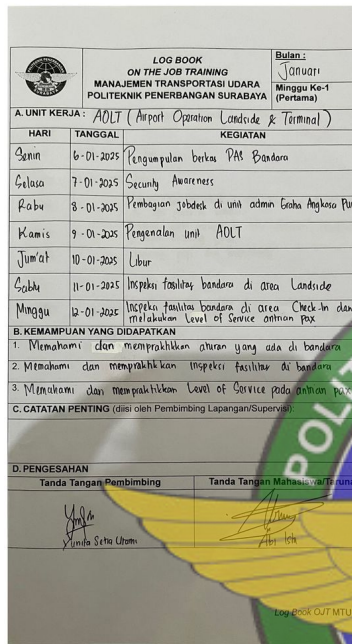 LOG BOOK
ON THE JOB TRAINING
MANAJEMEN TRANSPORTASI UDARA
POLITEKNIK PENERBANGAN SURABAYA
Bulan :
Januari
Minggu Ke-1
(Pertama)
A. UNIT KERJA : AOLT ( Airport Operation Landside & Terminal )
HARI TANGGAL KEGIATAN
Senin 6-01-2025 Pengumpulan berkas PAS Bandara
Selasa 7-01-2025 Security Awareness
Rabu 8-01-2025 Pembagian jobdesk di unit admin Graha Angkasa Pu
Kamis 9-01-2025 Pengenalan unit AOLT
Jum'at 10-01-2025 Libur
Sabtu 11-01-2025 Inspeksi fasilitas bandara di area Landside
Minggu 12-01-2025 Inspeksi fasilitas bandara di area Check-In dan
melakukan Level of Service antrian pax
B. KEMAMPUAN YANG DIDAPATKAN
1. Memahami dan mempraktikkan aturan yang ada di bandara
2. Memahami dan mempraktikkan Inspeksi fasilitas di bandara
3. Memahami dan mempraktikkan Level of Service pada antrian pax
C. CATATAN PENTING (diisi oleh Pembimbing Lapangan/Supervisi):
D. PENGESAHAN
Tanda Tangan Pembimbing Tanda Tangan Mahasiswa/Taruna
Yunda Setia Utami
Abi Ista
POLIT
Log Book OJT MTU